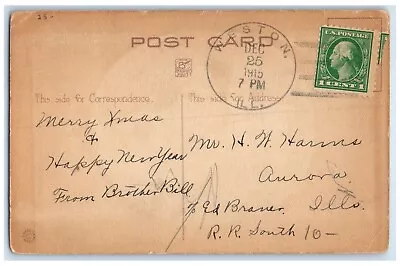 POST CARD
This side for Correspondence. This side for Address.
WESTON,
DEC
25
1915
7 PM
ILL.
U.S. POSTAGE
1 CENT 1
Merry Xmas
&
Happy New Year
From Brother Bill
Mr. H. W. Harms
Aurora
Ills.
c/o Ed Braner
R.R. South 10-